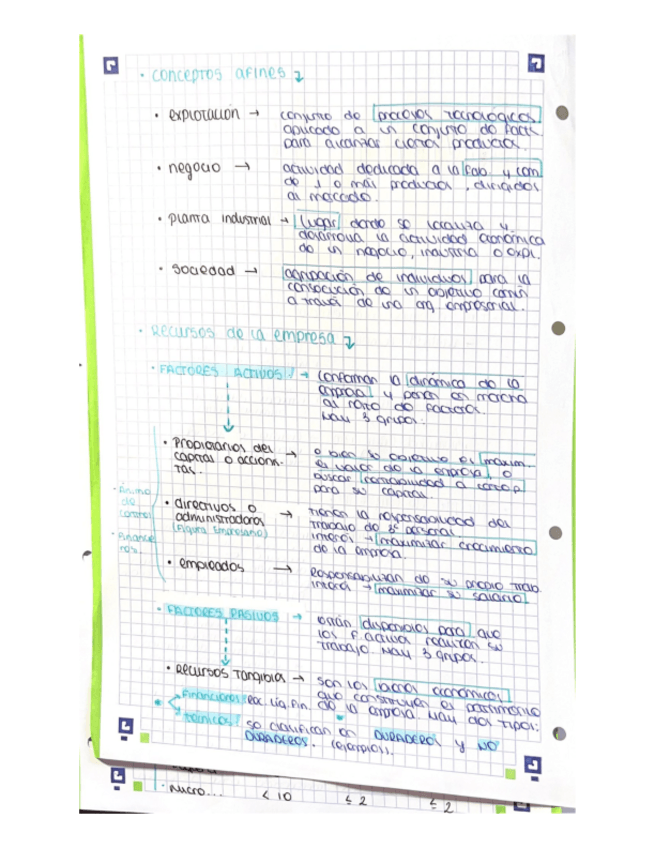 · conceptos afines
· explotación → conjunto de procesos tecnológicos
aplicado a un conjunto de fact.
para alcanzar ciertos productos.
· negocio → actividad dedicada a la fab. y com.
de 1 o más productos, dirigidos
al mercado.
· planta industrial → lugar donde se localiza y
desarrolla la actividad económica
de un negocio, industria o expl.
· sociedad → agrupación de individuos para la
consecución de un objetivo común
a través de una org. empresarial.
· Recursos de la empresa
· FACTORES ACTIVOS! → conforman la dinámica de la
empresa y ponen en marcha
al resto de factores.
Hay 3 grupos.
· Propietarios del
capital o accionis-
tas. → o bien su objetivo es maxim.
el valor de la empresa, o
buscar rentabilidad a corto p.
para su capital.
· Ánimo
de
control
· Financie
ros.
· directivos o
administradores
(Figura Empresario) → tienen la responsabilidad del
trabajo de su personal.
interés → maximizar crecimiento
de la empresa.
· empleados → Responsabilizan de su propio trab.
interés → maximizar su salario
· FACTORES PASIVOS → están disponibles para que
los F. activos realicen su
trabajo. Hay 3 grupos.
· Recursos Tangibles → son los bienes económicos
que constituyen el patrimonio
de la empresa. Hay dos tipos:
Financieros: rec. liq. fin.
técnicos: se clasifican en DURADEROS y NO
DURADEROS. (ejemplos).
· Micro... < 10 ≤ 2 ≤ 2